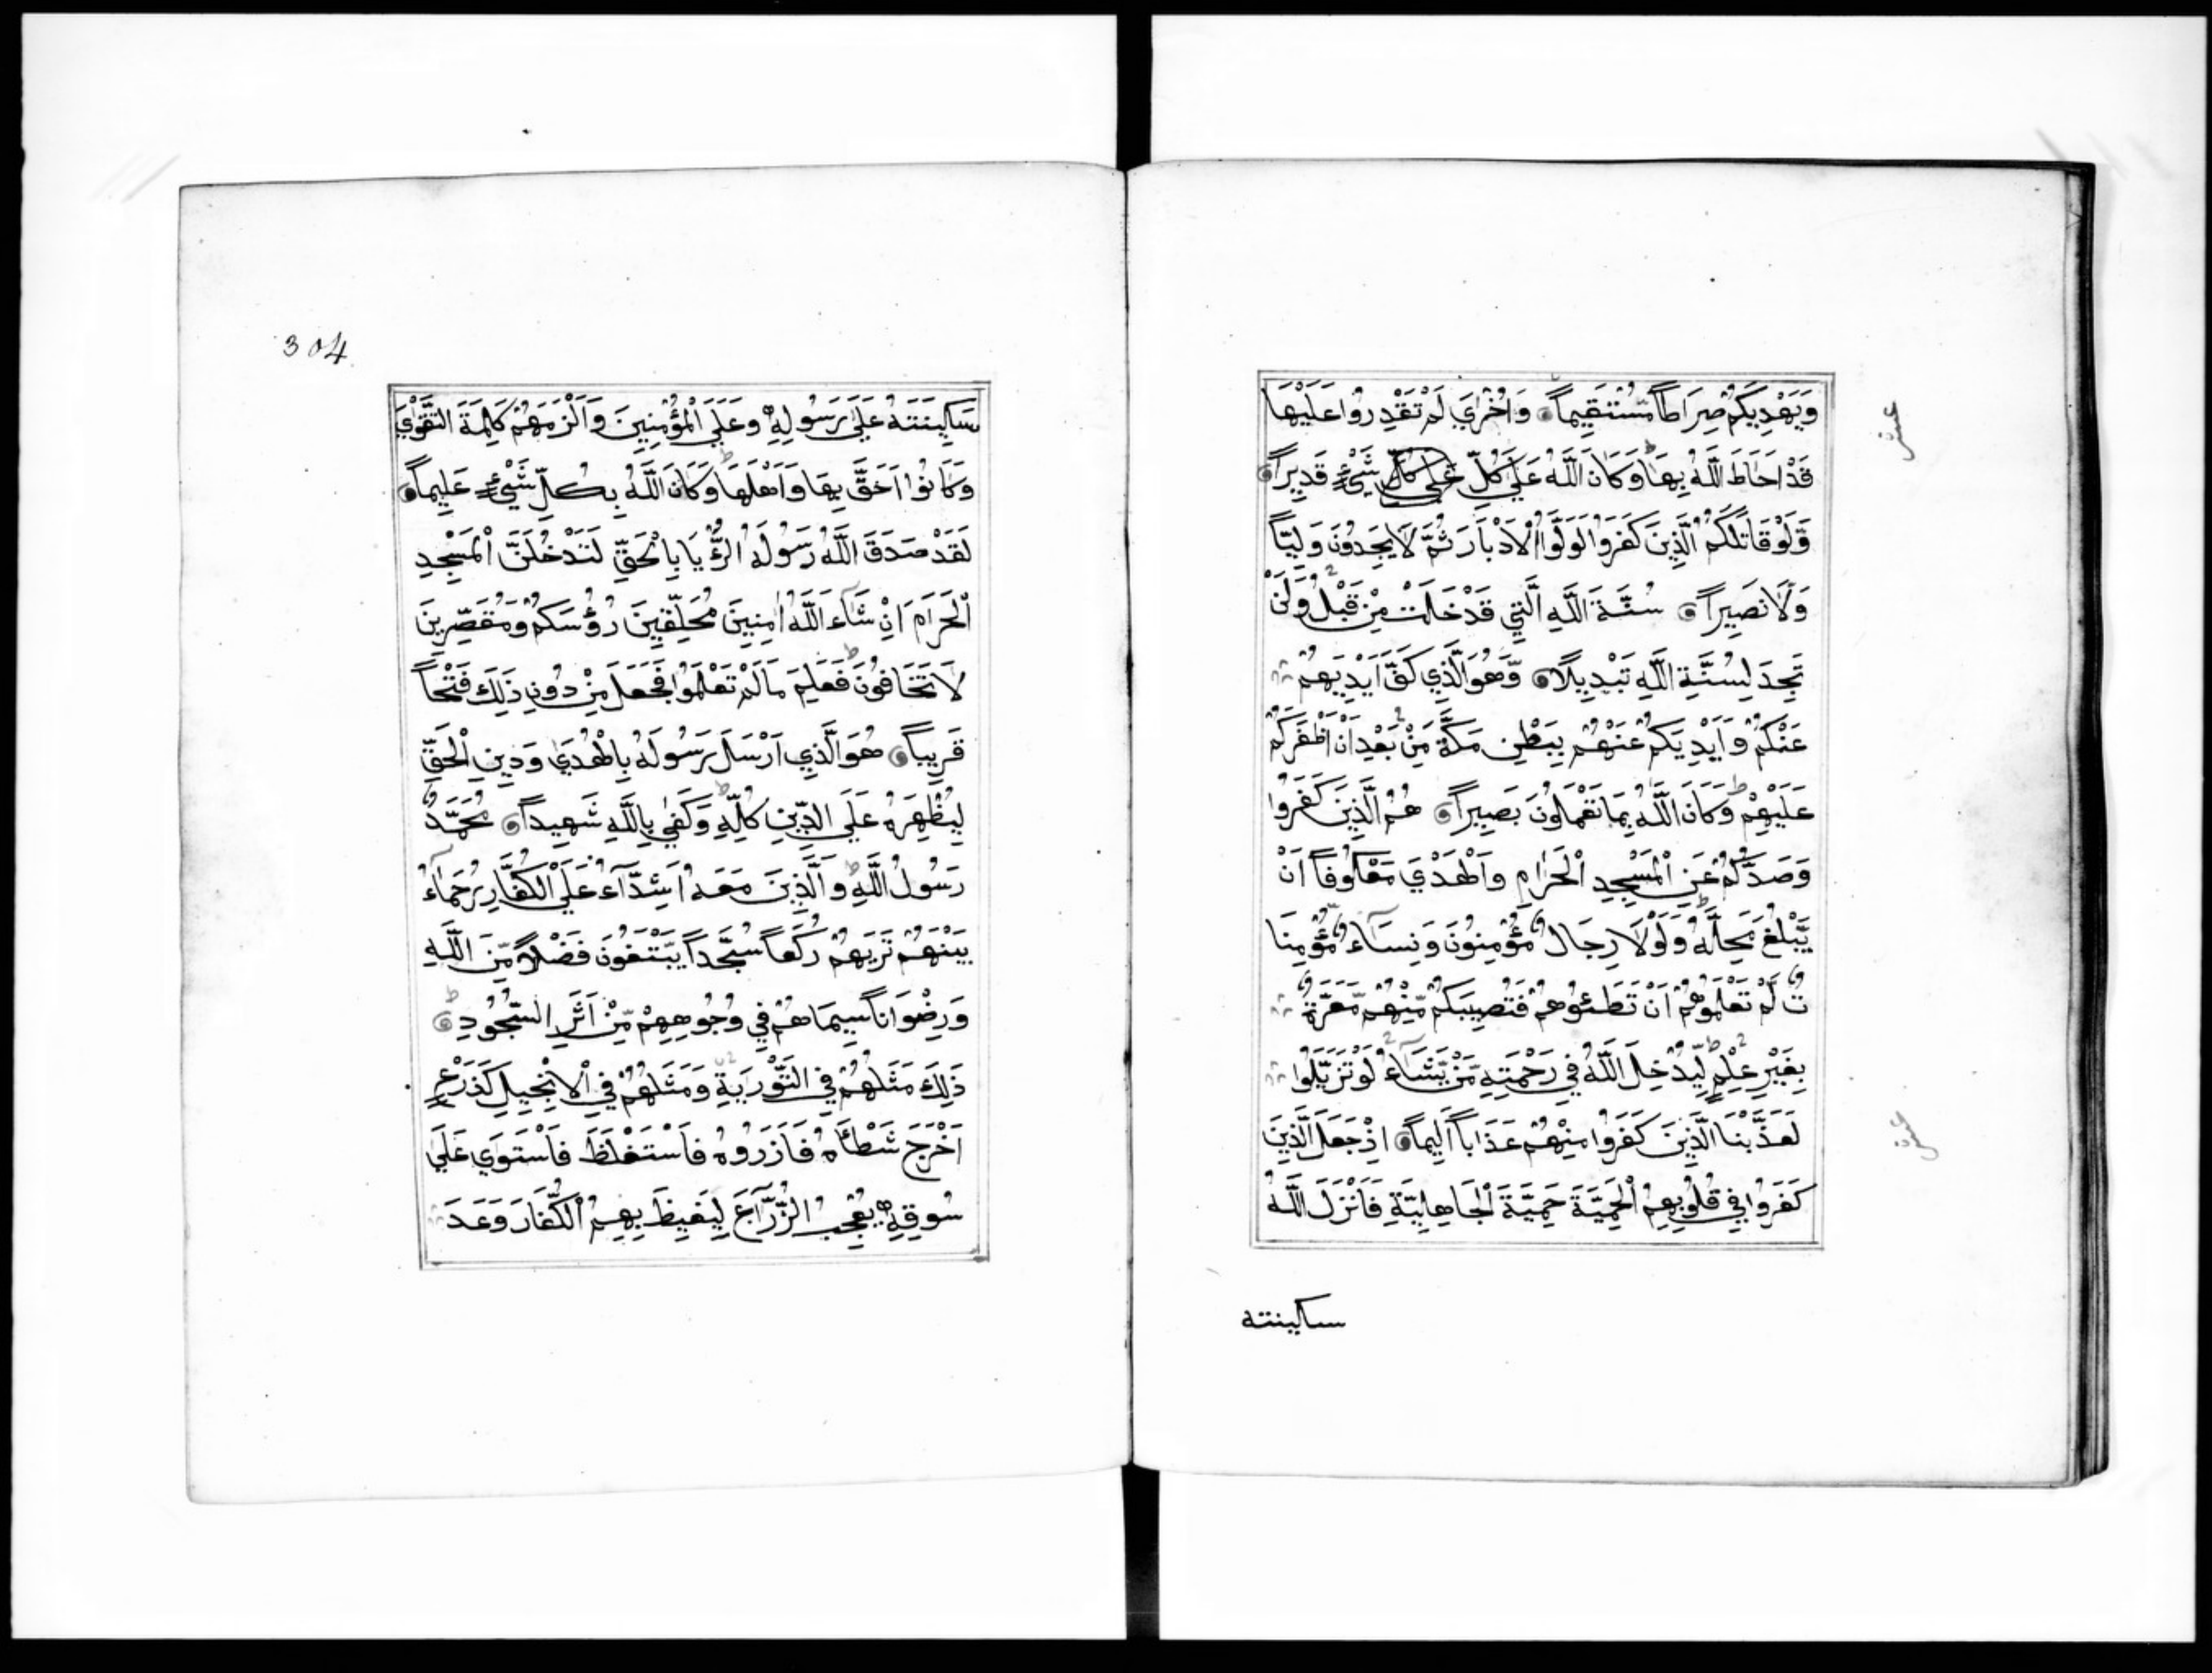 وَيَهْدِيَكُمْ صِرَاطاً مُّسْتَقِيماً وَاُخْرَيٰ لَمْ تَقْدِرُوا عَلَيْهَا
قَدْ اَحَاطَ اللَّهُ بِهَا وَكَانَ اللَّهُ عَلَيٰ كُلِّ عَلَي كُلِّ شَيْءٍ قَدِيراً
وَّلَوْ قَاتَلَكُمُ الَّذِينَ كَفَرُوا لَوَلَّوُا الْاَدْبَارَ ثُمَّ لَا يَجِدُونَ وَلِيّاً
وَّلَا نَصِيراً سُنَّةَ اللَّهِ الَّتِي قَدْ خَلَتْ مِنْ قَبْلُ وَلَنْ
تَجِدَ لِسُنَّةِ اللَّهِ تَبْدِيلًا وَّهُوَ الَّذِي كَفَّ اَيْدِيَهُمْ
عَنْكُمْ وَاَيْدِيَكُمْ عَنْهُمْ بِبَطْنِ مَكَّةَ مِنْ بَعْدِ اَنْ اَظْفَرَكُمْ
عَلَيْهِمْ وَكَانَ اللَّهُ بِمَا تَعْمَلُونَ بَصِيراً هُمُ الَّذِينَ كَفَرُوا
وَصَدُّكُمْ عَنِ الْمَسْجِدِ الْحَرَامِ وَالْهَدْيَ مَعْكُوفاً اَنْ
يَّبْلُغَ مَحِلَّهُ وَلَوْلَا رِجَالٌ مُّؤْمِنُونَ وَنِسَآءٌ مُّؤْمِنَا
تٌ لَّمْ تَعْلَمُوهُمْ اَنْ تَطَئُوهُمْ فَتُصِيبَكُمْ مِّنْهُمْ مَّعَرَّةٌ
بِغَيْرِ عِلْمٍ لِّيُدْخِلَ اللَّهُ فِي رَحْمَتِهِ مَنْ يَّشَآءُ لَوْ تَزَيَّلُوا
لَعَذَّبْنَا الَّذِينَ كَفَرُوا مِنْهُمْ عَذَاباً اَلِيماً اِذْ جَعَلَ الَّذِينَ
كَفَرُوا فِي قُلُوبِهِمُ الْحَمِيَّةَ حَمِيَّةَ الْجَاهِلِيَّةِ فَاَنْزَلَ اللَّهُ
سكينته
عشر
عشر
304
سَكِينَتَهُ عَلَيٰ رَسُولِهِ وَعَلَي الْمُؤْمِنِينَ وَاَلْزَمَهُمْ كَلِمَةَ التَّقْوَيٰ
وَكَانُوا اَحَقَّ بِهَا وَاَهْلَهَا وَكَانَ اللَّهُ بِكُلِّ شَيْءٍ عَلِيماً
لَقَدْ صَدَقَ اللَّهُ رَسُولَهُ الرُّءْيَا بِالْحَقِّ لَتَدْخُلَنَّ الْمَسْجِدِ
الْحَرَامَ اِنْ شَآءَ اللَّهُ اٰمِنِينَ مُحَلِّقِينَ رُؤُسَكُمْ وَمُقَصِّرِينَ
لَا تَخَافُونَ فَعَلِمَ مَا لَمْ تَعْلَمُوا فَجَعَلَ مِنْ دُونِ ذَلِكَ فَتْحاً
قَرِيباً هُوَ الَّذِي اَرْسَلَ رَسُولَهُ بِالْهُدَيٰ وَدِينِ الْحَقِّ
لِيُظْهِرَهُ عَلَي الدِّينِ كُلِّهِ وَكَفَيٰ بِاللَّهِ شَهِيداً مُحَمَّدٌ
رَسُولُ اللَّهِ وَالَّذِينَ مَعَهُ اَشِدَّآءُ عَلَي الْكُفَّارِ رُحَمَآءُ
بَيْنَهُمْ تَرَيهُمْ رُكَّعاً سُجَّداً يَّبْتَغُونَ فَضْلاً مِّنَ اللَّهِ
وَرِضْوَاناً سِيمَاهُمْ فِي وُجُوهِهِمْ مِّنْ اَثَرِ السُّجُودِ
ذَلِكَ مَثَلُهُمْ فِي التَّوْرَيةِ وَمَثَلُهُمْ فِي الْاِنْجِيلِ كَزَرْعٍ
اَخْرَجَ شَطْاَهُ فَاٰزَرَوُهُ فَاسْتَغْلَظَ فَاسْتَوَيٰ عَلَيٰ
سُوقِهِ يُعْجِبُ الزُّرَّاعَ لِيَغِيظَ بِهِمُ الْكُفَّارَ وَعَدَ